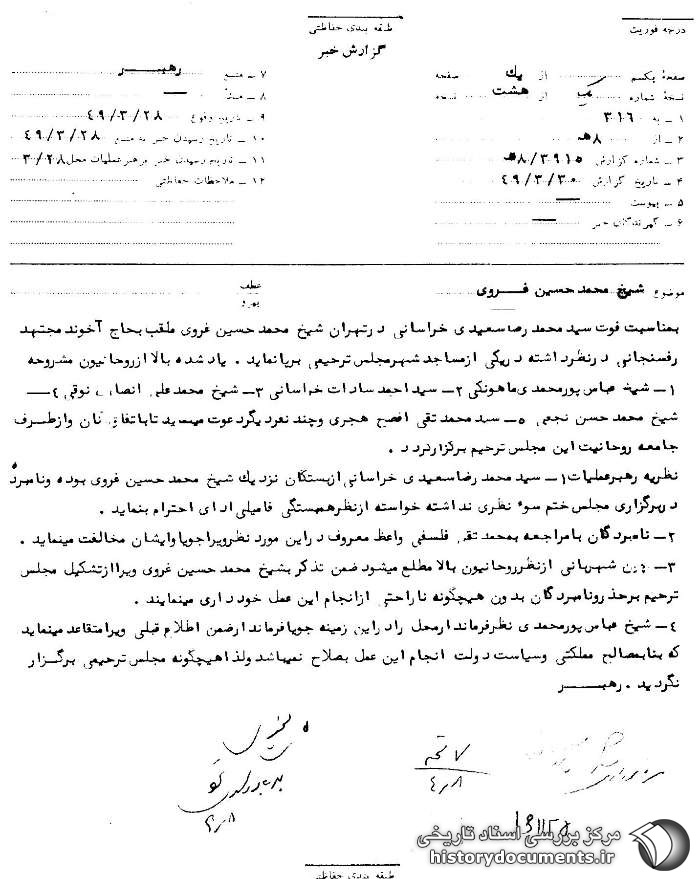 درجه فوریت
طبقه بندی حفاظتی
گزارش خبر
صفحهٔ یکم از یک صفحه
نسخهٔ شماره یک از هشت نسخه
۱ – به ۳۱۶
۲ – از ۸هـ
۳ – شماره گزارش ۸/۳۹۱۵هـ
۴ – تاریخ گزارش ۴۹/۳/۳۰
۵ – پیوست —
۶ – گیرندگان خبر —
۷ – منبع رهبـــر
۸ – منشأ —
۹ – تاریخ وقوع ۴۹/۳/۲۸
۱۰ – تاریخ رسیدن خبر به منبع ۴۹/۳/۲۸
۱۱ – تاریخ رسیدن خبر برهبر عملیات محل ۳/۲۸۰
۱۲ – ملاحظات حفاظتی
موضوع شیخ محمد حسین غروی
عطف
پیرو
بمناسبت فوت سید محمد رضا سعیدی خراسانی در تهران شیخ محمد حسین غروی ملقب بحاج آخوند مجتهد
رفسنجانی در نظر داشته در یکی از مساجد شهر مجلس ترحیمی برپا نماید . یاد شده بالا از روحانیون مشروحه
۱– شیخ عباس پورمحمدی ماهونکی ۲– سید احمد سادات خراسانی ۳– شیخ محمد علی انصاری نوقی ۴–
شیخ محمد حسن نجفی ۵– سید محمد تقی افصح هجری و چند نفر دیگر دعوت مینماید تا باتفاق آنان و از طرف
جامعه روحانیت این مجلس ترحیم برگزار گردد .
نظریه رهبر عملیات ۱– سید محمد رضا سعیدی خراسانی از بستگان نزدیک شیخ محمد حسین غروی بوده و نامبرده
در برگزاری مجلس ختم سوء نظری نداشته خواسته از نظر همبستگی فامیلی ادای احترام بنماید .
۲– نامبردگان با مراجعه به محمد تقی فلسفی واعظ معروف در این مورد نظر ویرا جویا و ایشان مخالفت مینماید .
۳– چون شهربانی از نظر روحانیون بالا مطلع میشود ضمن تذکر بشیخ محمد حسین غروی ویرا از تشکیل مجلس
ترحیم برحذر و نامبردگان بدون هیچگونه ناراحتی از انجام این عمل خودداری مینمایند .
۴– شیخ عباس پورمحمدی نظر فرماندار محل را در این زمینه جویا فرماندار ضمن اطلاع قبلی ویرا متقاعد مینماید
که بنا بمصالح مملکتی و سیاست دولت انجام این عمل بصلاح نمیباشد ولذا هیچگونه مجلس ترحیمی برگزار
نگردید . رهبـــر
۴/۸
۴/۸
مرکز بررسی اسناد تاریخی
historydocuments.ir
طبقه بندی حفاظتی